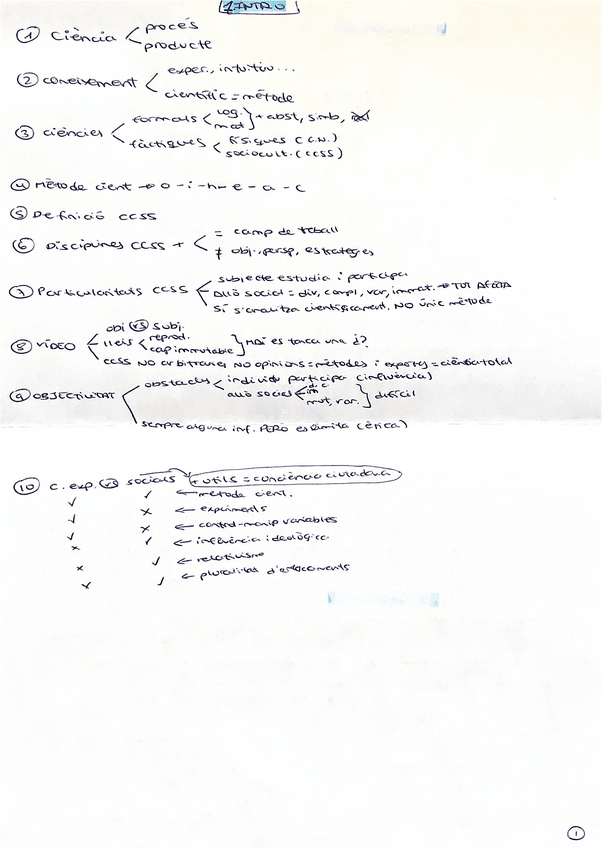 1 INTRO
① Ciència procés
producte
② coneixement exper., intuïtiu...
científic = mètode
③ ciències formals log. mat + abst, simb,
fàctiques físiques (C.N.)
sociocult. (CCSS)
④ Mètode cient → o - i - h - e - a - c
⑤ Definició CCSS
⑥ Disciplines CCSS + = camp de treball
≠ obj., persp, estratègies
⑦ Particularitats CCSS subjecte estudia i participa
Allò social = div, compl, var, immat. → TOT AFECTA
Sí s'analitza científicament, NO únic mètode
⑧ VÍDEO obj vs subj.
lleis reprod.
cap immutable } MAI es tanca una
CCSS NO arbitraries, NO opinions = mètodes i expertes = ciència total
⑨ OBJECTIVITAT obstacles individu participa (influència)
allò social
mut, var. } difícil
sempre alguna inf. PERÒ es limita (ètica)
⑩ C. exp. vs socials + útils = consciència ciutadana
✓ ✓ ← mètode cient.
✓ × ← experiments
✓ × ← control-manip variables
× ✓ ← influència ideològica
× ✓ ← relativisme
✓ ✓ ← pluralitat d'enfocaments
1